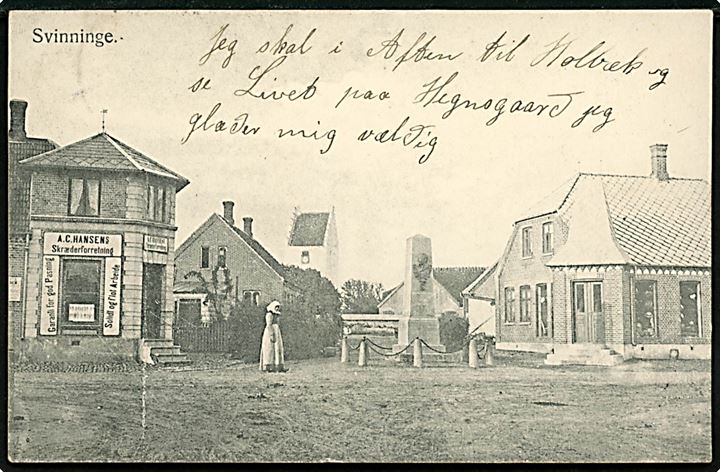 Svinninge.
Jeg skal i Aften til Holbæk og
se Livet paa Hegnsgaard jeg
glæder mig vældig
A.C.HANSENS
Skræderforretning
Garanti for god Pasning
Solidt og flot Arbeide